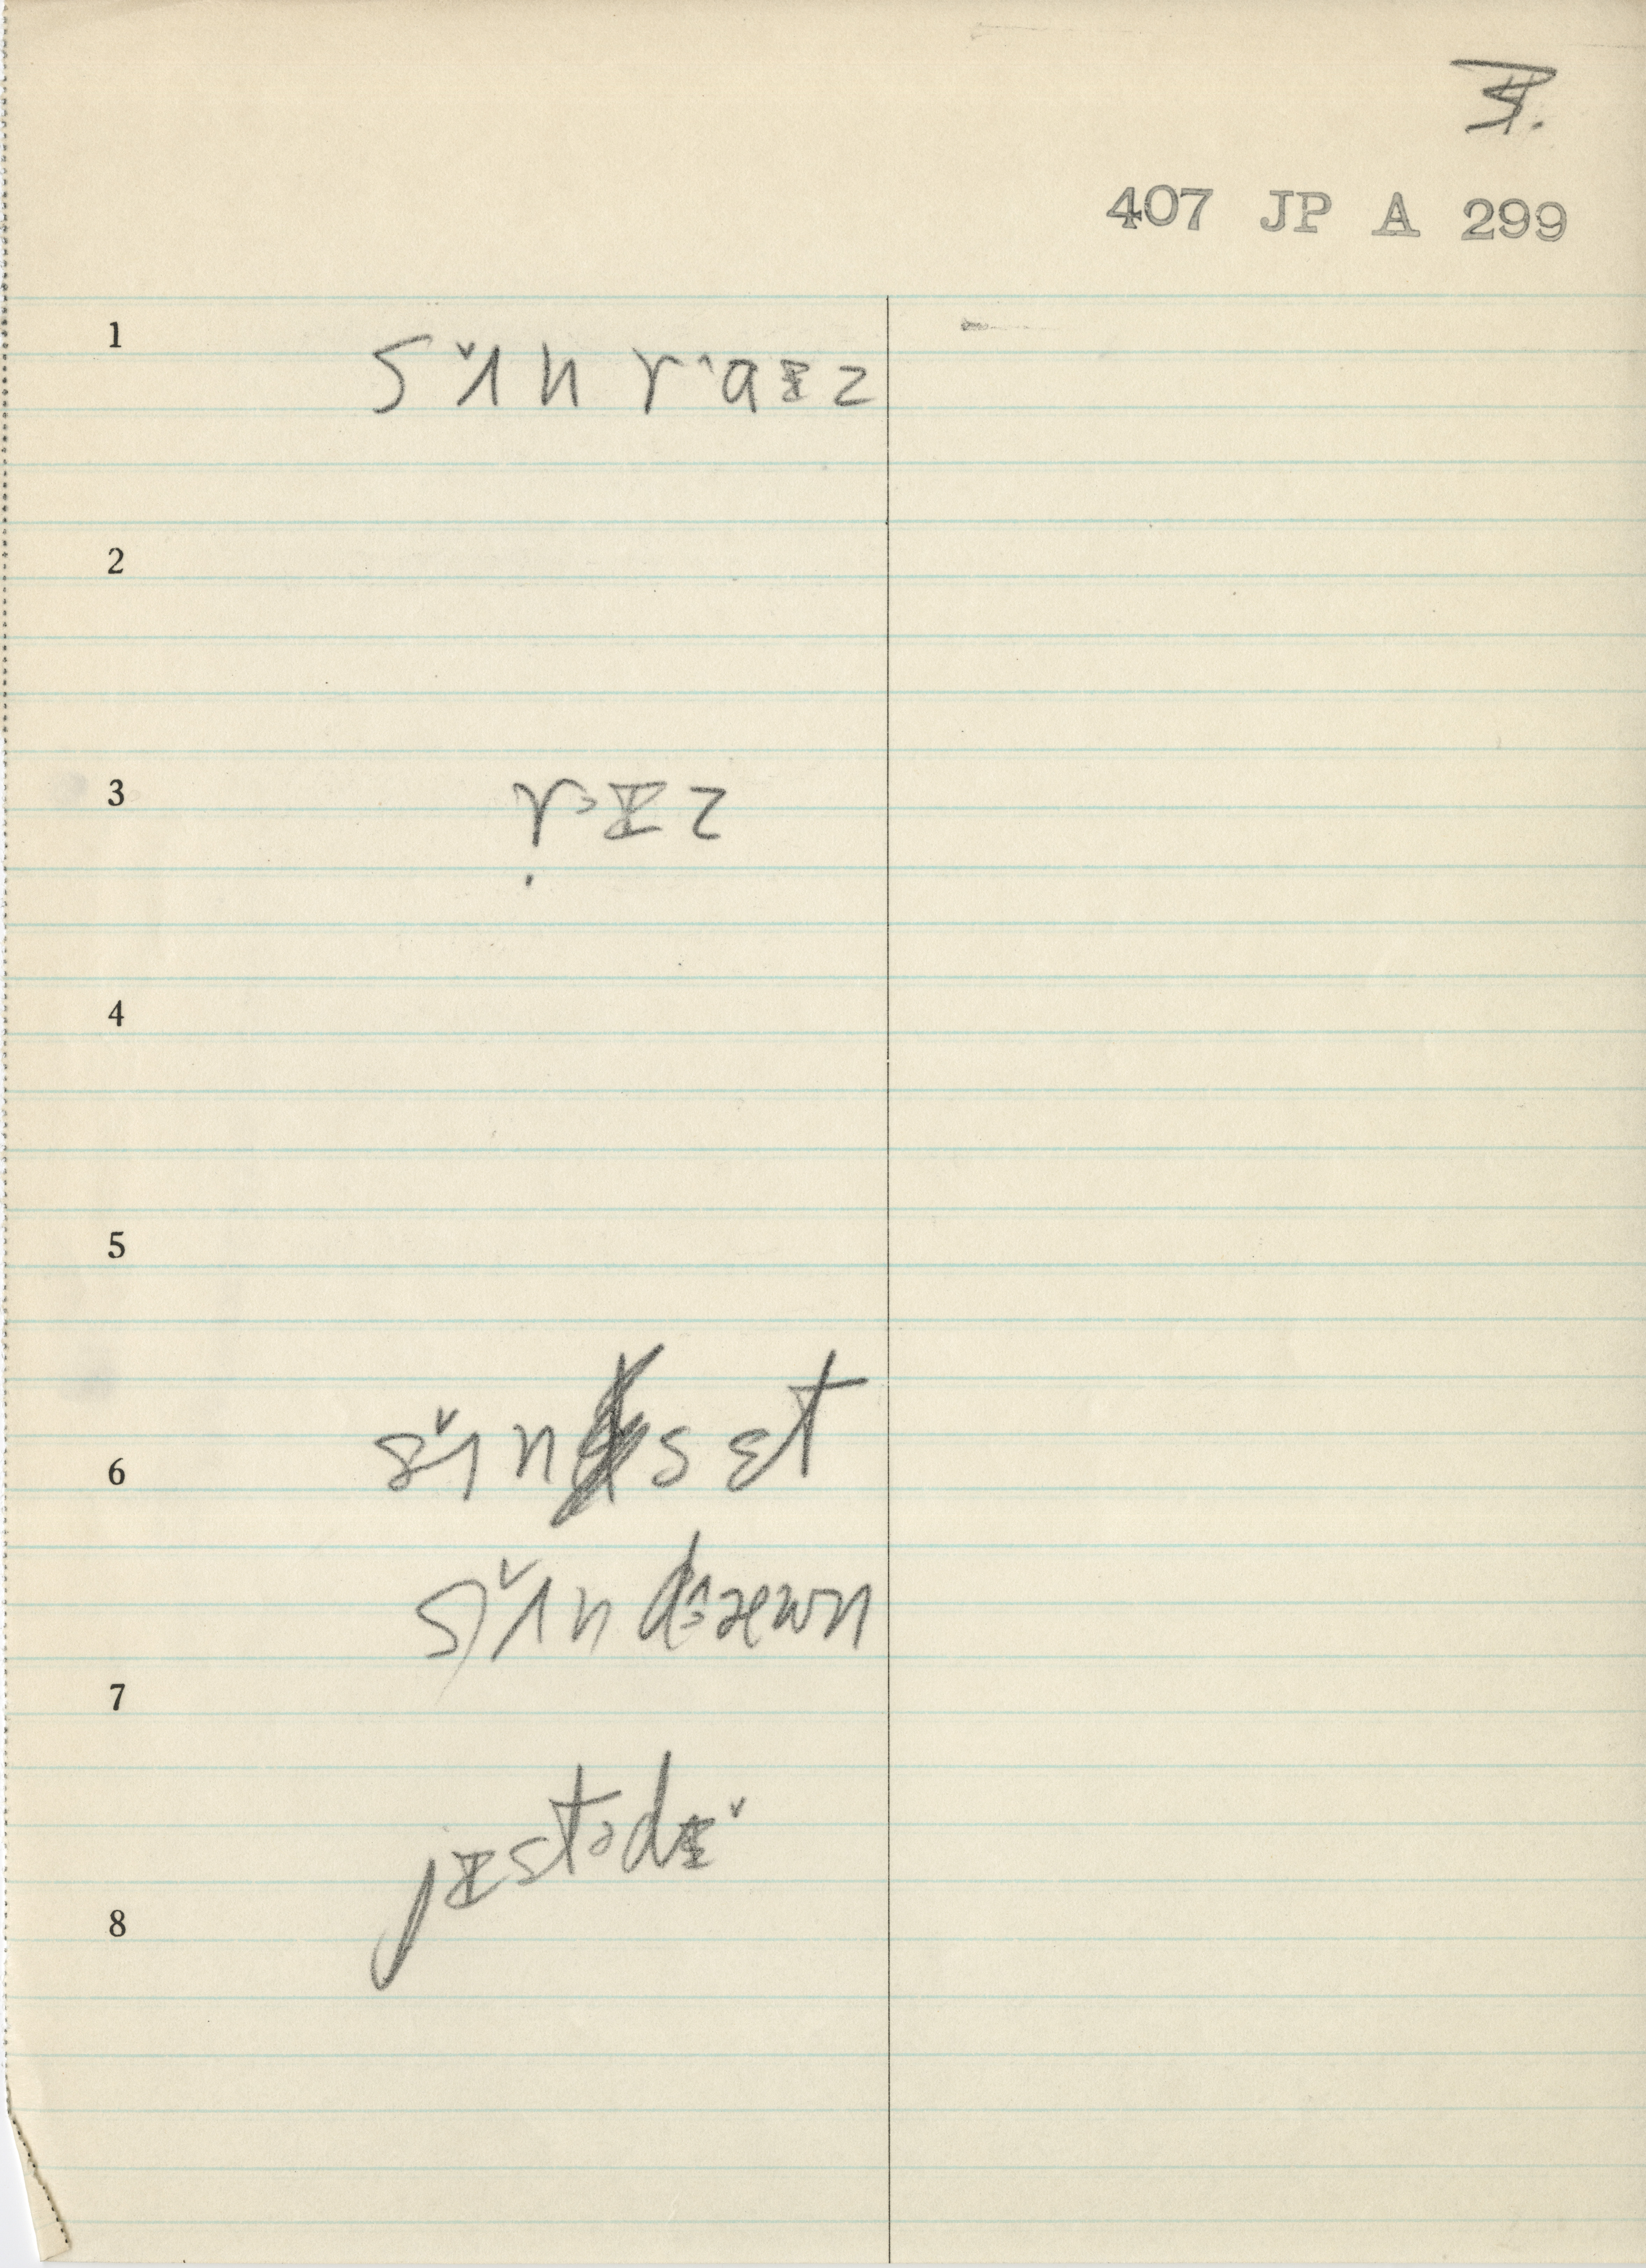 407 JP A 299
1
sʌ̌n r˄aɪz
2
3
rɪz
4
5
6
sʌ̌n sɛt
sʌ̌n d˄æwn
7
jɪstədɪ̌
8